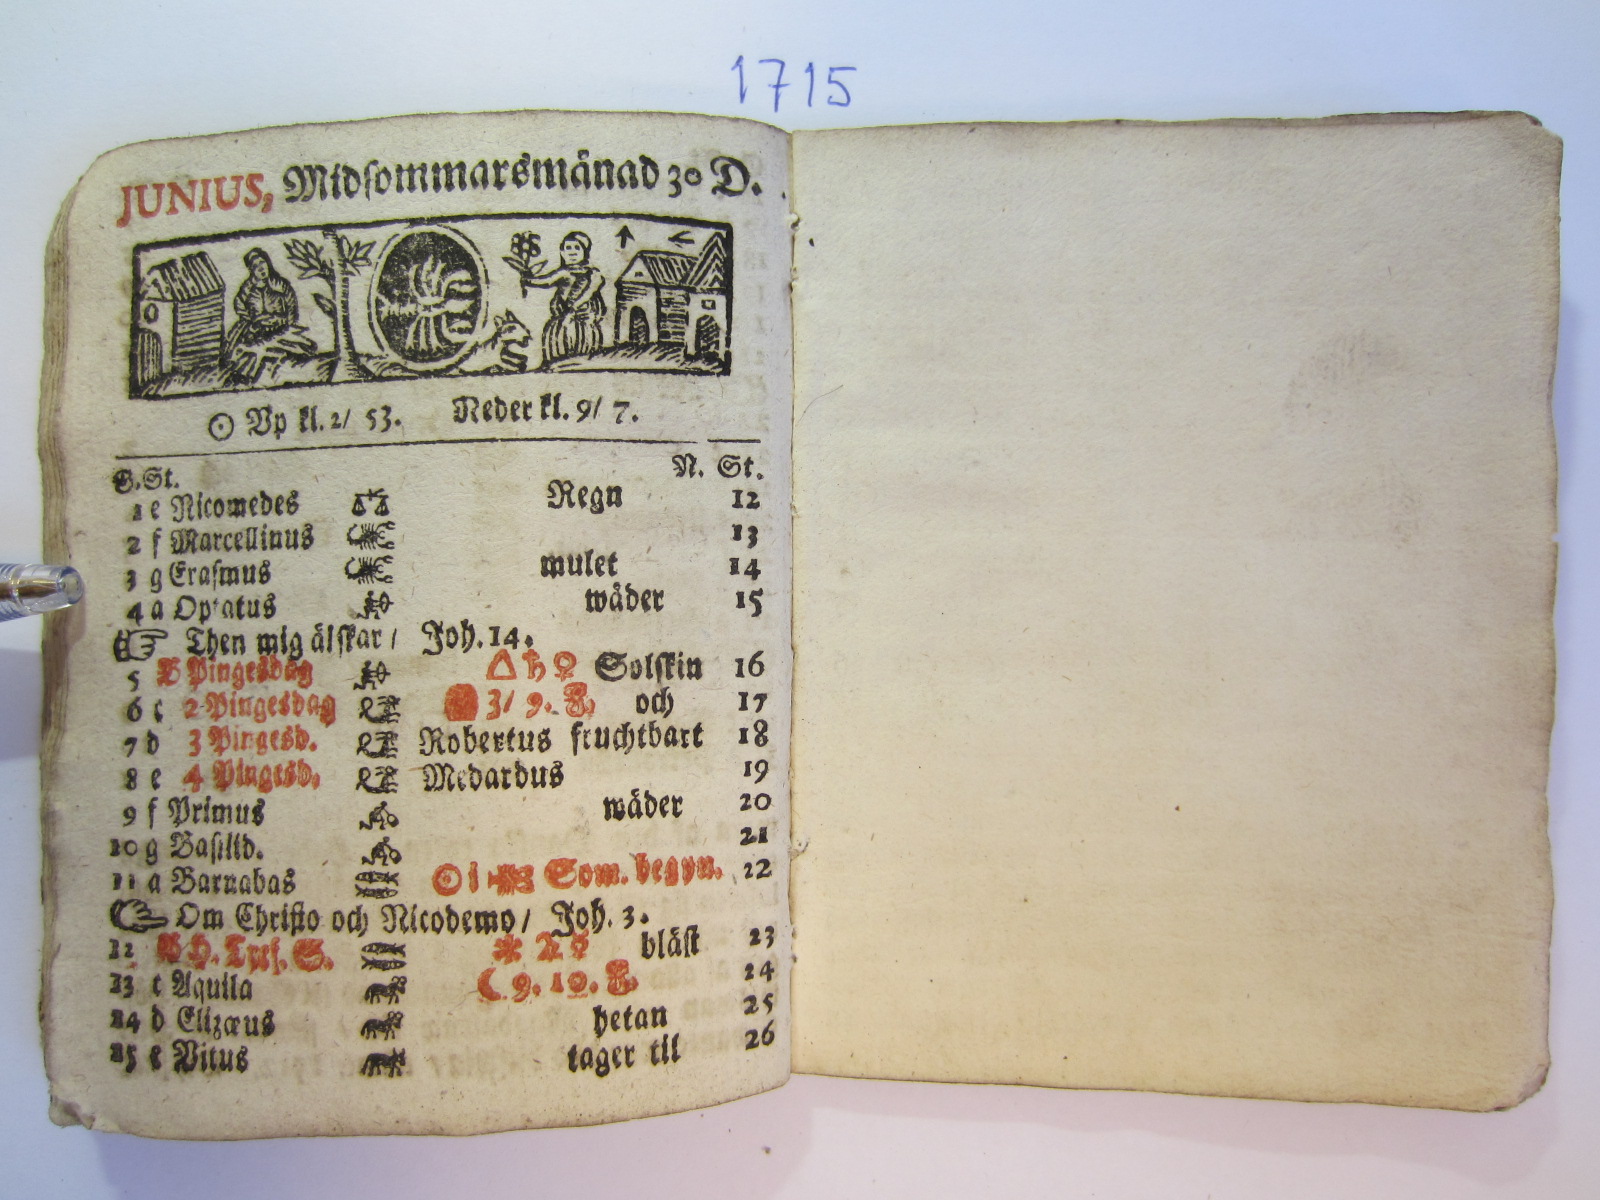 1715
JUNIUS, Midsommarsmånad 30 D.
☉ Vp kl. 2/ 53. Neder kl. 9/ 7.
G. St. N. St.
1 e Nicomedes Regn 12
2 f Marcellinus 13
3 g Erasmus mulet 14
4 a Optatus wäder 15
Then mig älskar / Joh. 14.
5 B Pingesdag △ ♄ ♀ Solskin 16
6 c 2 Pingesdag 3/ 9. och 17
7 d 3 Pingesd. Robertus fruchtbart 18
8 e 4 Pingesd. Medardus 19
9 f Primus wäder 20
10 g Basilid. 21
11 a Barnabas ☉ i Som. begyn. 22
Om Christo och Nicodemo / Joh. 3.
12 B H. Tref. S. blåst 23
13 c Aquila ☾ 9. 10. 24
14 d Elizæus hetan 25
15 e Vitus tager til 26